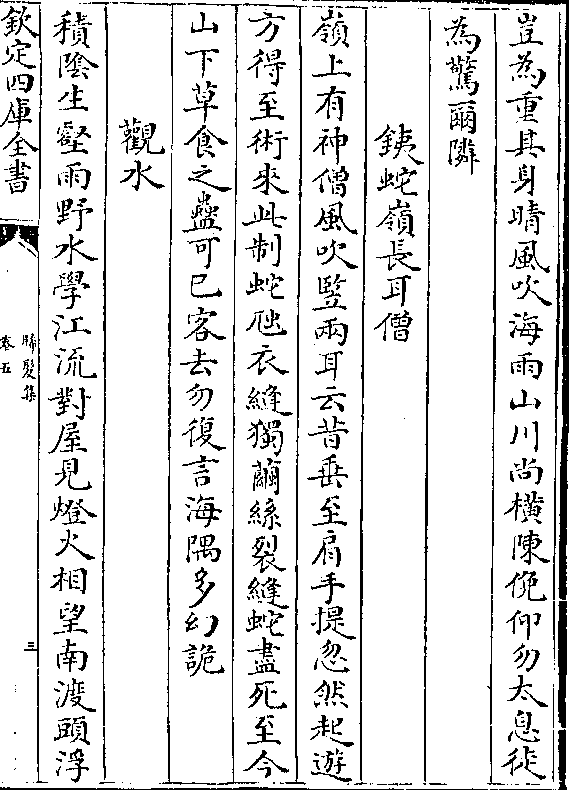 豈為重其身晴風吹海雨山川尚橫陳俛仰勿太息徒
為驚爾隣
鐵蛇嶺長耳僧
嶺上有神僧風吹豎兩耳云昔垂至肩手提忽然起遊
方得至術來此制蛇虺衣縫獨繭絲裂縫蛇盡死至今
山下草食之蠱可已客去勿復言海隅多幻詭
觀水
積陰生壑雨野水學江流對屋見燈火相望南渡頭浮
欽定四庫全書
晞髮集
卷五
三